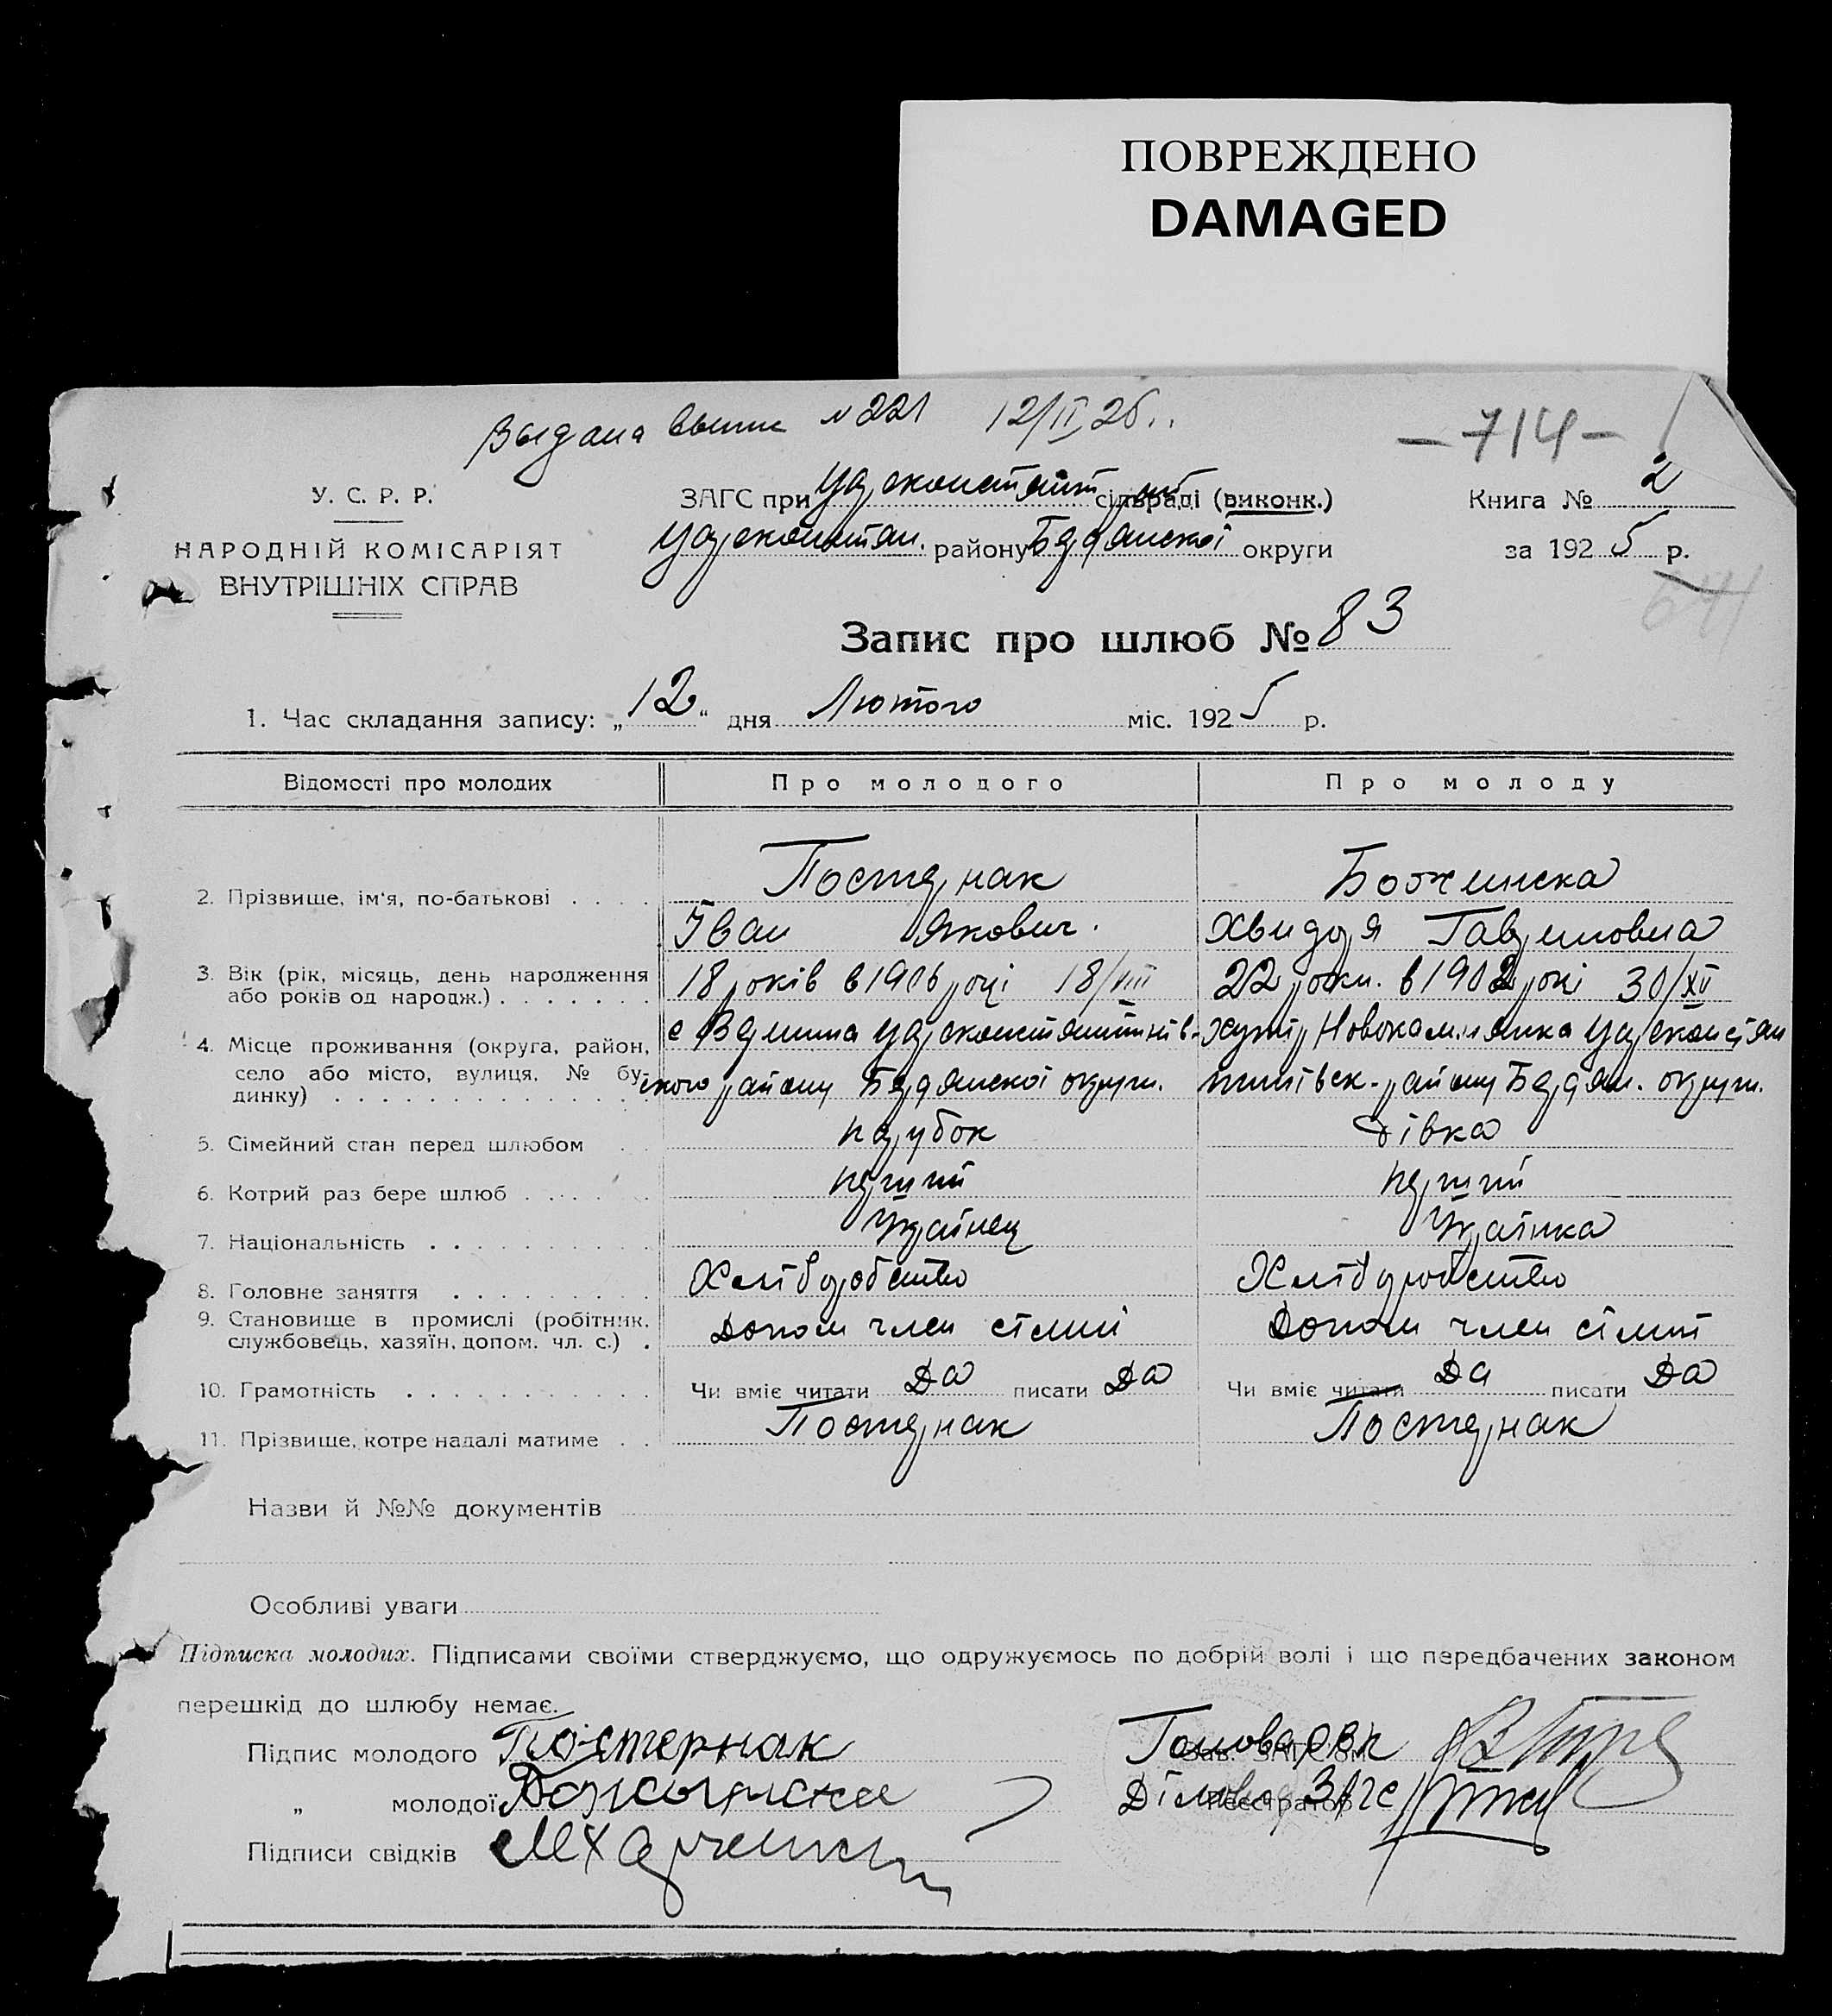 ПОВРЕЖДЕНО
DAMAGED
Выдана выпис №221 12/II 25.
-714-
У. С. Р. Р.
НАРОДНІЙ КОМІСАРІЯТ
ВНУТРІШНІХ СПРАВ
ЗАГС при Цареконстянт сільраді (виконк.)
Цареконстян. району Бердянскої округи
Книга № 2
за 1925 р.
Запис про шлюб № 83
1. Час складання запису: „12“ дня Лютого міс. 1925 р.
Відомості про молодих Про молодого Про молоду
2. Прізвище, ім'я, по-батькові . . . . Постернак Божинска
Іван Якович. Хвидоря Гавриловна
3. Вік (рік, місяць, день народження 18 років в 1906 році 18/VIII 22 роки. в 1902 рокі 30/XII
або років од народж.) . . . . . . .
4. Місце проживання (округа, район, с Цареконстянтинів- хутір Новокамянка Цареконстян
село або місто, вулиця, № бу- ского району Бердянскої округи. тинівск-району Бердян. округи.
динку) . . . . . . . . . . . . . .
5. Сімейний стан перед шлюбом . . парубок дівка
6. Котрий раз бере шлюб . . . . . . перший перший
7. Національність . . . . . . . . . . Українец Українка
8. Головне заняття . . . . . . . . . Хліборобство Хліборобство
9. Становище в промислі (робітник, Допом член сімьї Допом член сімьї
службовець, хазяїн, допом. чл. с.) .
10. Грамотність . . . . . . . . . . . Чи вміє читати Да писати Да Чи вміє читати Да писати Да
11. Прізвище, котре надалі матиме . . Постернак Постернак
Назви й №№ документів
Особливі уваги
Підписка молодих. Підписами своїми стверджуємо, що одружуємось по добрій волі і що передбачених законом
перешкід до шлюбу немає.
Підпис молодого Постернак Голова РВК Зав. ЗАГС'ом
„ молодої Божынска Діловод Загс Реєстратор
Підписи свідків М Харченко